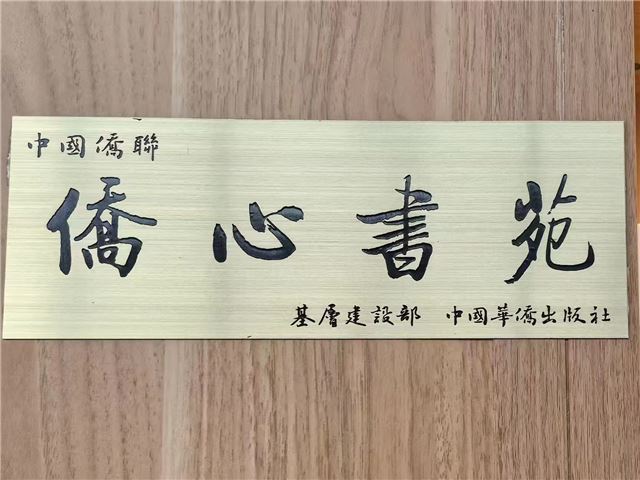 中國僑聯
僑心書苑
基層建設部 中國華僑出版社